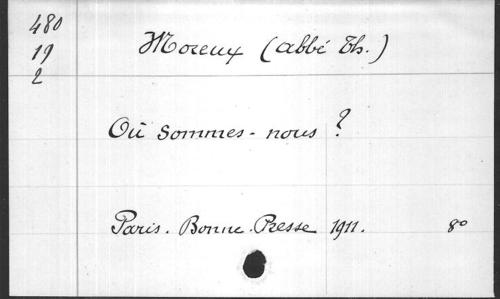 480
19
2
Moreux (abbé Th.)
Où sommes-nous ?
Paris. Bonne Presse 1911. 8°